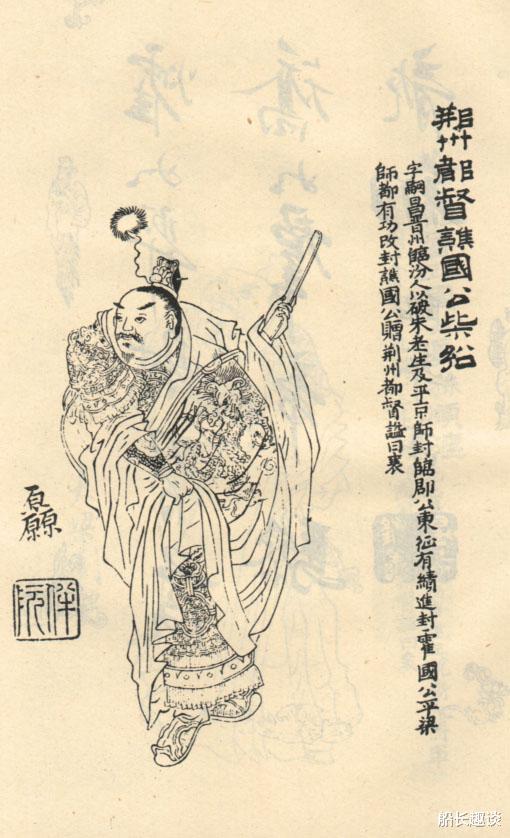 荆州都督譙國公柴紹
字嗣昌晉州臨汾人以破朱老生及平京師封臨郡公東征有績進封霍國公平梁
師都有功改封譙國公贈荆州都督諡曰襄
伴阮
船长趣谈